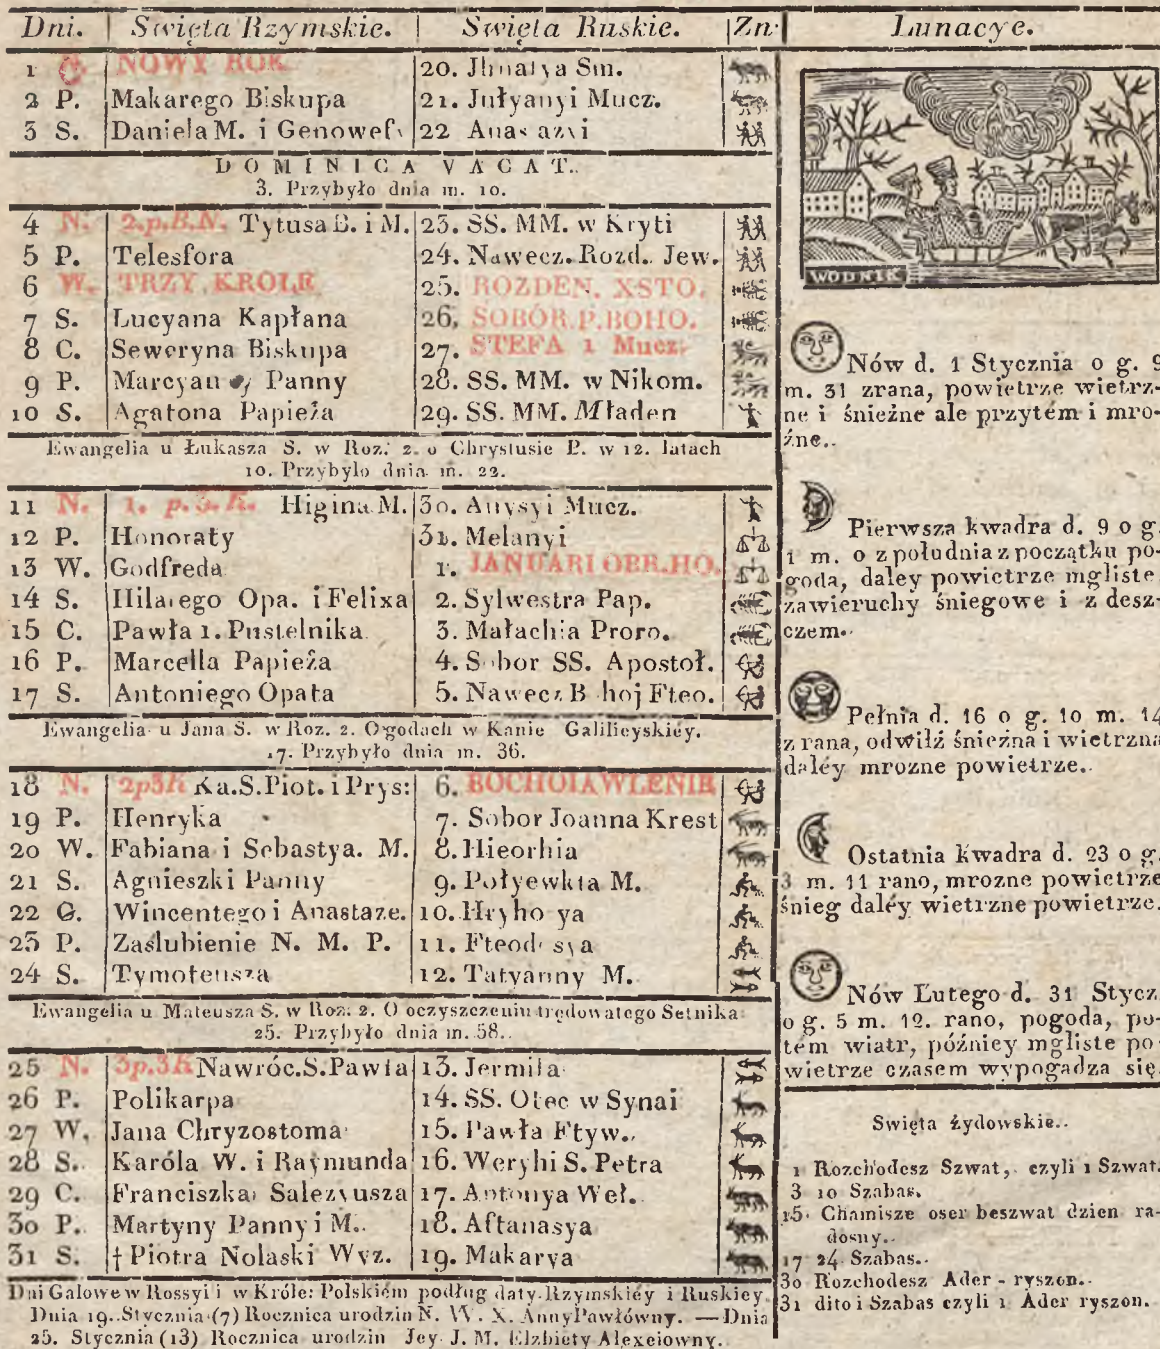 Dni. | Swięta Rzymskie. | Swięta Ruskie. |Zn.
1 NOWY ROK 20. Jhnatya Sm.
2 P. Makarego Biskupa 21. Jułyanyi Mucz.
3 S. Daniela M. i Genowefy 22 Anastazyi
DOMINICA VACAT.
3. Przybyło dnia m. 10.
4 N. 2.p.B.N. Tytusa B. i M. 23. SS. MM. w Kryti
5 P. Telesfora 24. Nawecz. Rozd. Jew.
6 W. TRZY KROLE 25. ROZDEN. XSTO.
7 S. Lucyana Kapłana 26. SOBÓR.P.BOHO.
8 C. Seweryna Biskupa 27. STEFA 1 Mucz.
9 P. Marcyanny Panny 28. SS. MM. w Nikom.
10 S. Agatona Papieża 29. SS. MM. Mładen
Ewangelia u Łukasza S. w Roz. 2. o Chrystusie P. w 12. latach
10. Przybyło dnia m. 22.
11 N. 1. p. 3. K. Higina M. 30. Anysyi Mucz.
12 P. Honoraty 31. Melanyi
13 W. Godfreda 1. JANUARI OBR.HO.
14 S. Hilarego Opa. i Felixa 2. Sylwestra Pap.
15 C. Pawła 1. Pustelnika 3. Małachia Proro.
16 P. Marcella Papieża 4. Sobor SS. Apostoł.
17 S. Antoniego Opata 5. Nawecz B hoj Fteo.
Ewangelia u Jana S. w Roz. 2. O godach w Kanie Galileyskiéy.
17. Przybyło dnia m. 36.
18 N. 2p3K Ka.S.Piot. i Prys: 6. BOCHOIAWLENIE
19 P. Henryka 7. Sobor Joanna Krest
20 W. Fabiana i Sebastya. M. 8. Hieorhia
21 S. Agnieszki Panny 9. Połyewkta M.
22 C. Wincentego i Anastaze. 10. Hryhorya
23 P. Zaślubienie N. M. P. 11. Fteodosya
24 S. Tymoteusza 12. Tatyanny M.
Ewangelia u Mateusza S. w Roz. 2. O oczyszczeniu trędowatego Setnika
25. Przybyło dnia m. 58..
25 N. 3p.3K Nawróc.S.Pawła 13. Jermiła
26 P. Polikarpa 14. SS. Otec w Synai
27 W. Jana Chryzostoma 15. Pawła Ftyw..
28 S. Karóla W. i Raymunda 16. Weryhi S. Petra
29 C. Franciszka Salezyusza 17. Antonya Weł.
30 P. Martyny Panny i M.. 18. Aftanasya
31 S. † Piotra Nolaski Wyz. 19. Makarya
Dni Galowe w Rossyi i w Króle: Polskiém podług daty Rzymskiéy i Ruskiey.
Dnia 19. Stycznia (7) Rocznica urodzin N. W. X. Anny Pawłówny. — Dnia
25. Stycznia (13) Rocznica urodzin Jey J. M. Elzbiety Alexeiowny.
Lunacye.
WODNIK
Nów d. 1 Stycznia o g. 9
m. 31 zrana, powietrze wietrz-
ne i śnieżne ale przytém i mro-
źne..
Pierwsza kwadra d. 9 o g.
1 m. 0 z południa z początku po-
goda, daley powietrze mgliste
zawieruchy śniegowe i z desz-
czem.
Pełnia d. 16 o g. 10 m. 14
z rana, odwilż śnieżna i wietrzna
daléy mrozne powietrze..
Ostatnia kwadra d. 23 o g.
3 m. 11 rano, mrozne powietrze
śnieg daléy wietrzne powietrze.
Nów Lutego d. 31 Stycz.
o g. 5 m. 12. rano, pogoda, po-
tém wiatr, późniey mgliste po-
wietrze czasem wypogadza się.
Swięta żydowskie..
1 Rozchodesz Szwat, czyli 1 Szwat.
3 10 Szabas.
15 Chamisze oser beszwat dzien ra-
dosny..
17 24 Szabas..
30 Rozchodesz Ader-ryszon..
31 dito i Szabas czyli 1 Ader ryszon.